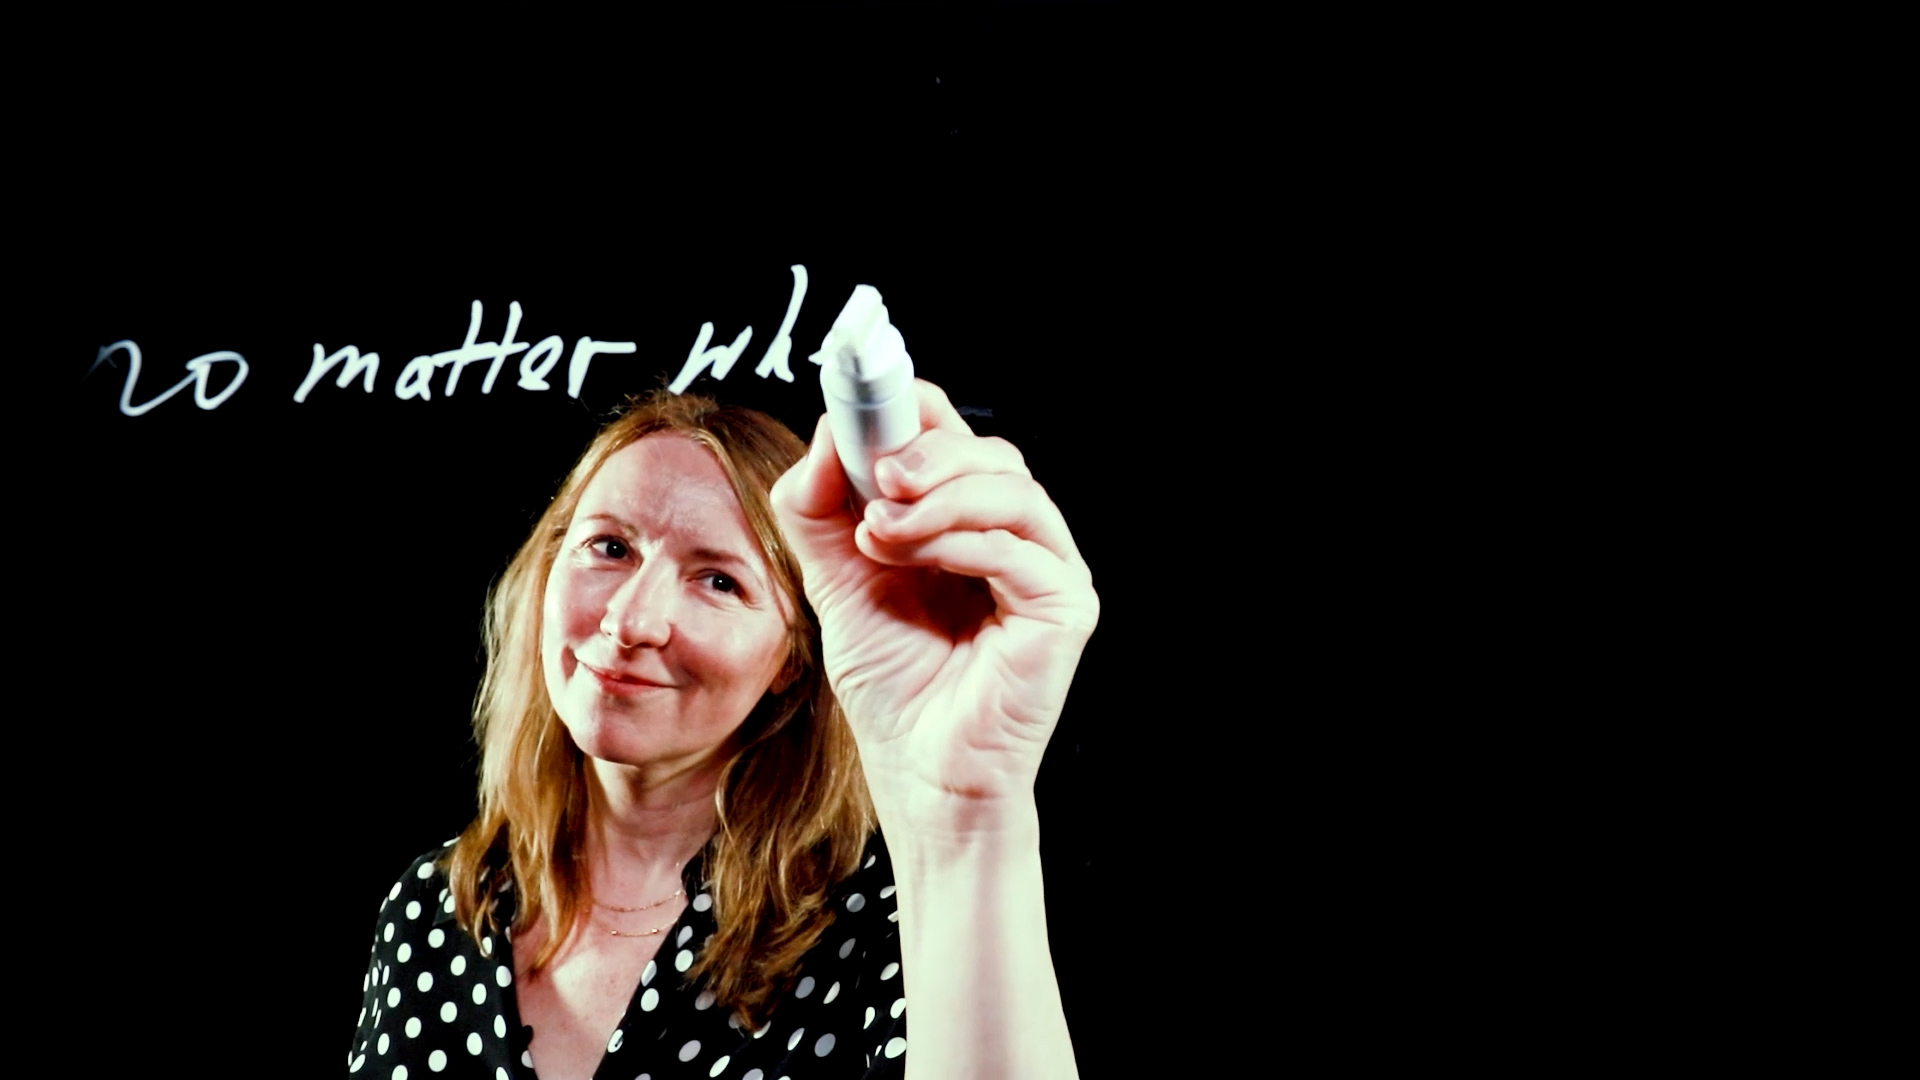 no matter wh